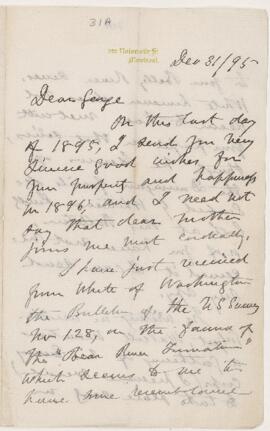 31A
Montreal.
Dec 31/95
Dear George
On this last day
of 1895, I send you very
sincere good wishes for
your prosperity and happiness
in 1896 and I need not
say that dear mother
joins me most cordially.
I have just received
from White of Washington
the Bulletin of the U S Survey
No 128, on the Fauna of
the "Bear River Formation"
which seems to me to
have some resemblance